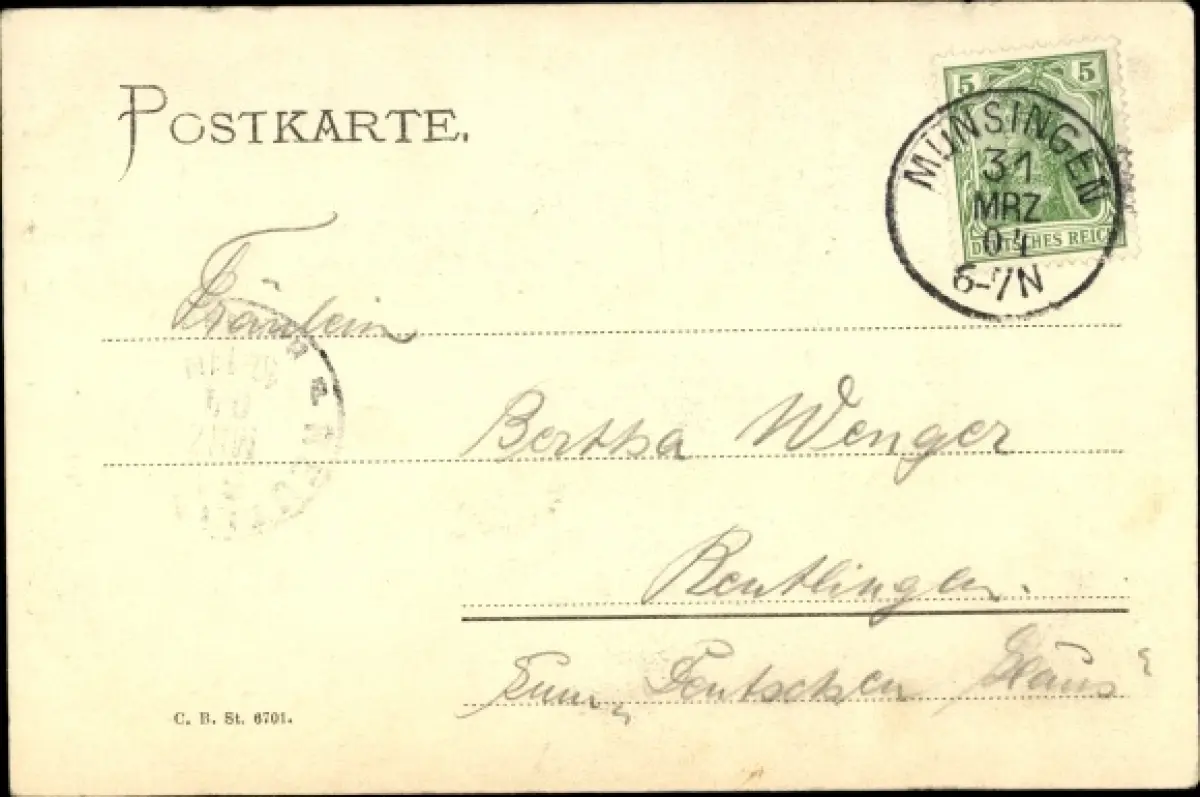 POSTKARTE.
5 5
MÜNSINGEN
31
MRZ
04
6-7N
DEUTSCHES REICH
Fräulein
Bertha Wenger
Reutlingen.
Zum „Deutschen Haus“
C. B. St. 6701.